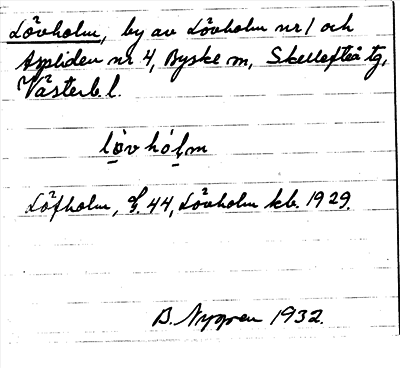 Lövholm, by av Lövholm nr 1 och
Aspliden nr 4, Byske sn, Skellefteå tg,
Västerb. l.
lövhólm
Löfholm, G. 44, Lövholm kb. 1929.
B. Nygren 1932.